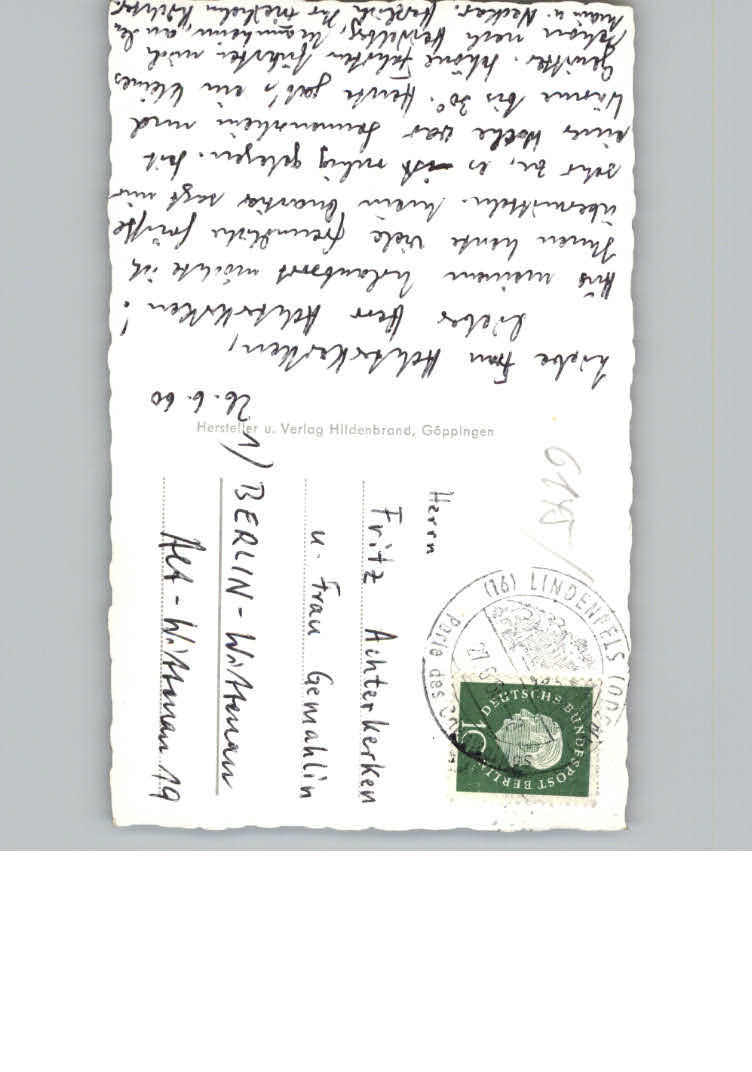 26.6.60
Liebe Frau Achterkerken,
Lieber Herr Achterkerken!
Aus meinem Urlaubsort möchte ich
Ihnen heute viele freundliche Grüße
übermitteln. Mein Quartier sagt mir
sehr zu, es ist ruhig gelegen. Seit
einer Woche war Sonnenschein und
Wärme bis 30°. Heute gab's ein kleines
Gewitter. Schöne Fahrten führten mich
schon nach Heidelberg, Mannheim, an den
Main u. Neckar. Herzlich Ihr
Hersteller u. Verlag Hildenbrand, Göppingen
6145/
(16) LINDENFELS (ODENW
Perle des
27.6.
DEUTSCHE BUNDESPOST BERLIN
10
Herrn
Fritz Achterkerken
u. Frau Gemahlin
1/ BERLIN-Wittenau
Alt-Wittenau 19